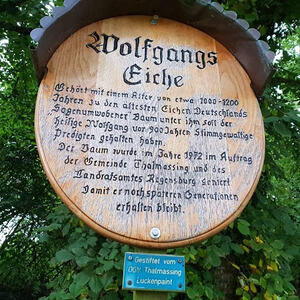 Wolfgangs
Eiche
Gehört mit einem Alter von etwa 1000-1200
Jahren zu den ältesten Eichen Deutschlands
"Sagenumwobener" Baum unter ihm soll der
heilige Wolfgang vor 900 Jahren Stimmgewaltige
Predigten gehalten haben.
Der Baum wurde im Jahre 1972 im Auftrag
der Gemeinde Thalmassing und des
Landratsamtes Regensburg saniert
Damit er noch späteren Generationen
erhalten bleibt.
Gestiftet vom
OGV Thalmassing
Luckenpaint